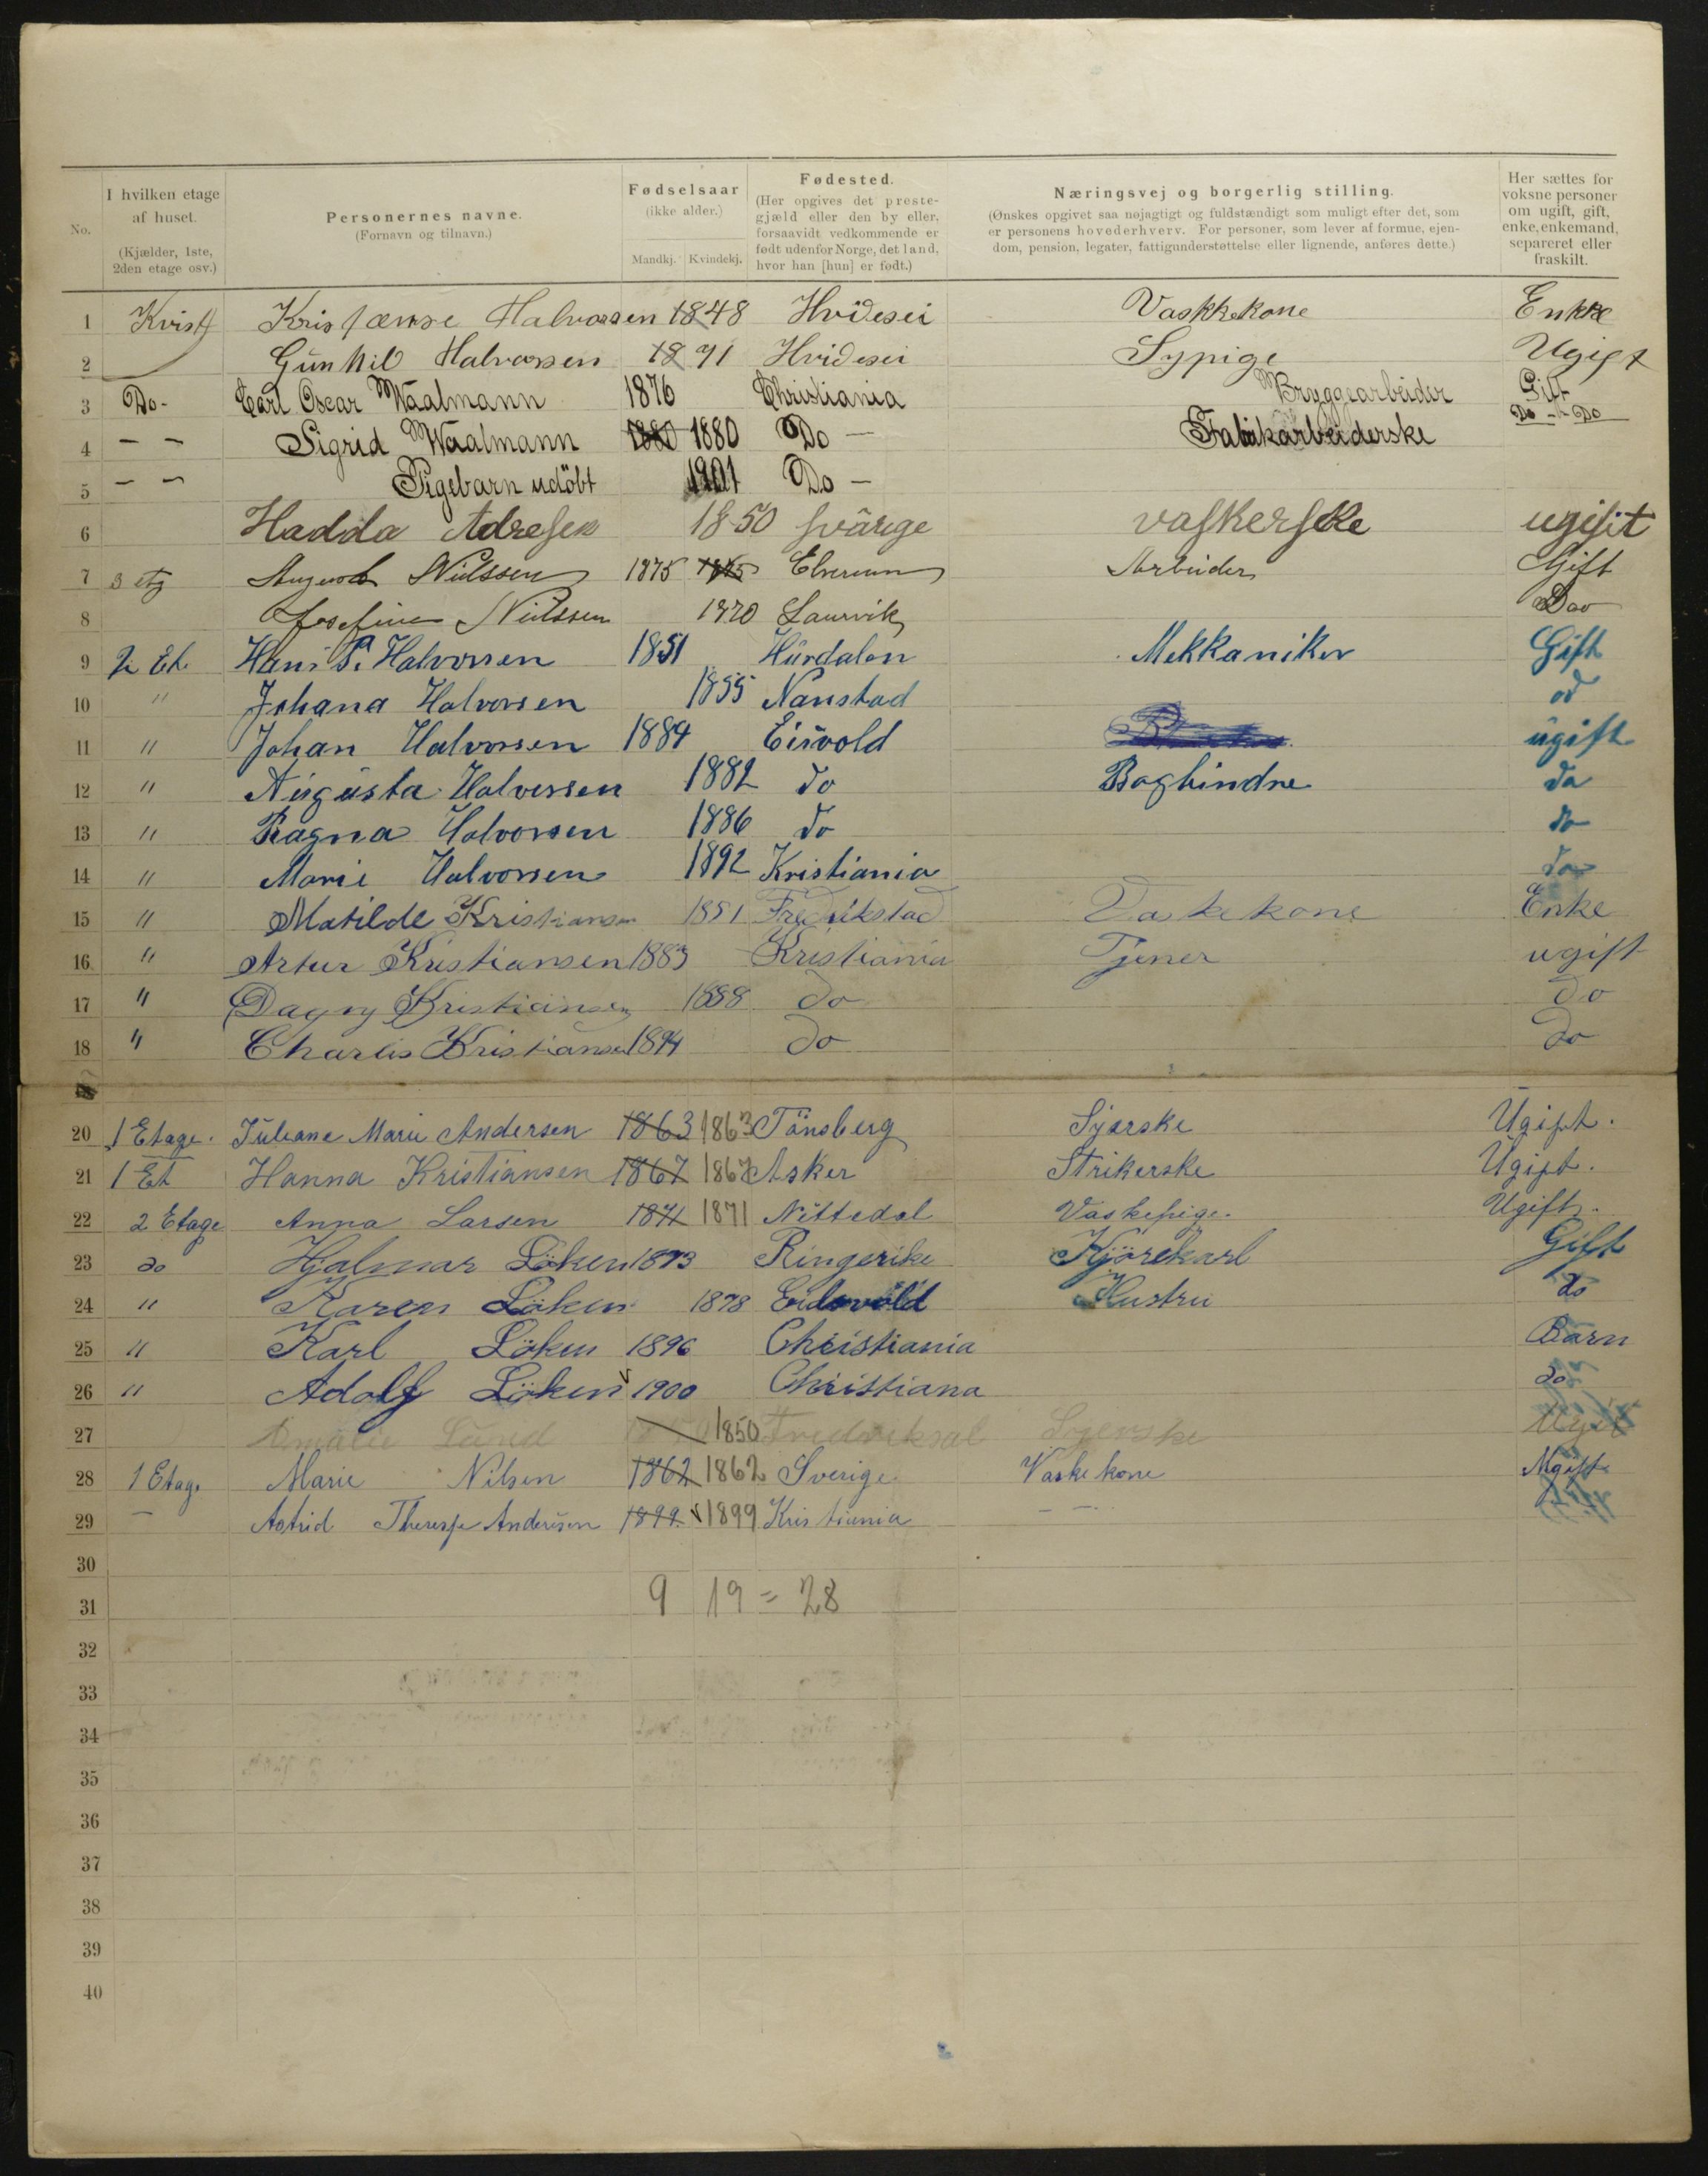 No.
I hvilken etage af huset. (Kjælder, 1ste, 2den etage osv.)
Personernes navne. (Fornavn og tilnavn.)
Fødselsaar (ikke alder.) Mandkj. Kvindekj.
Fødested. (Her opgives det prestegjæld eller den by eller, forsaavidt vedkommende er født udenfor Norge, det land, hvor han [hun] er født.)
Næringsvej og borgerlig stilling. (Ønskes opgivet saa nøjagtigt og fuldstændigt som muligt efter det, som er personens hovederhverv. For personer, som lever af formue, ejendom, pension, legater, fattigunderstøttelse eller lignende, anføres dette.)
Her sættes for voksne personer om ugift, gift, enke, enkemand, separeret eller fraskilt.
1 Kvist Halvorsen 1848 Hvidesei Vaskkekone Enkke
2 Gunhild Halvorsen 18 91 Hvidesei Sypige Ugift
3 Do- Carl Oscar Waalmann 1876 Christiania Bryggearbeider Gift
4 - - Sigrid Waalmann 1880 1880 Do - Fabrikarbeiderske Do - Do
5 - - Pigebarn udöbt 1901 Do -
6 Hadda Adresen 1850 svärige vaskerske ugift
7 3 etg Nielssen 1875 1875 Elverum Arbeider Gift
8 Josefine Nielssen 1870 Laurvik Do
9 2 Et. Hans P. Halvorsen 1851 Hurdalen Mekkaniker Gift
10 " Johana Halvorsen 1855 Nanstad do
11 " Johan Halvorsen 1884 Eisvold ugift
12 " Augusta Halvorsen 1882 do Bogbindne do
13 " Ragna Halvorsen 1886 do do
14 " Marie Halvorsen 1892 Kristiania do
15 " Matilde Kristiansen 1851 Fredrikstad Vaskekone Enke
16 " Artur Kristiansen 1883 Kristiania Tjener ugift
17 " Dagny Kristiansen 1888 do do
18 " Charlis Kristiansen 1894 do do
20 1 Etage. Juliane Marie Andersen 1863 1863 Tönsberg Syerske Ugift.
21 1 Et Hanna Kristiansen 1867 1867 Asker Strikerske Ugift.
22 2 Etage Anna Larsen 1871 1871 Nittedal Vaskepige. Ugift.
23 do Hjalmar Löken 1873 Ringerike Kjörekarl Gift
24 " Karen Löken 1878 Eidsvold Hustru do
25 " Karl Löken 1896 Christiania Barn
26 " Adolf Löken 1900 Christiana do
27 Amalie Lund 1850 Syerske Ugift
28 1 Etage Marie Nilsen 1862 1862 Sverige Vaskekone Ugift
29 - Astrid Therese Andersen 1899 1899 Kristiania - -
30
31 9 19 = 28
32
33
34
35
36
37
38
39
40